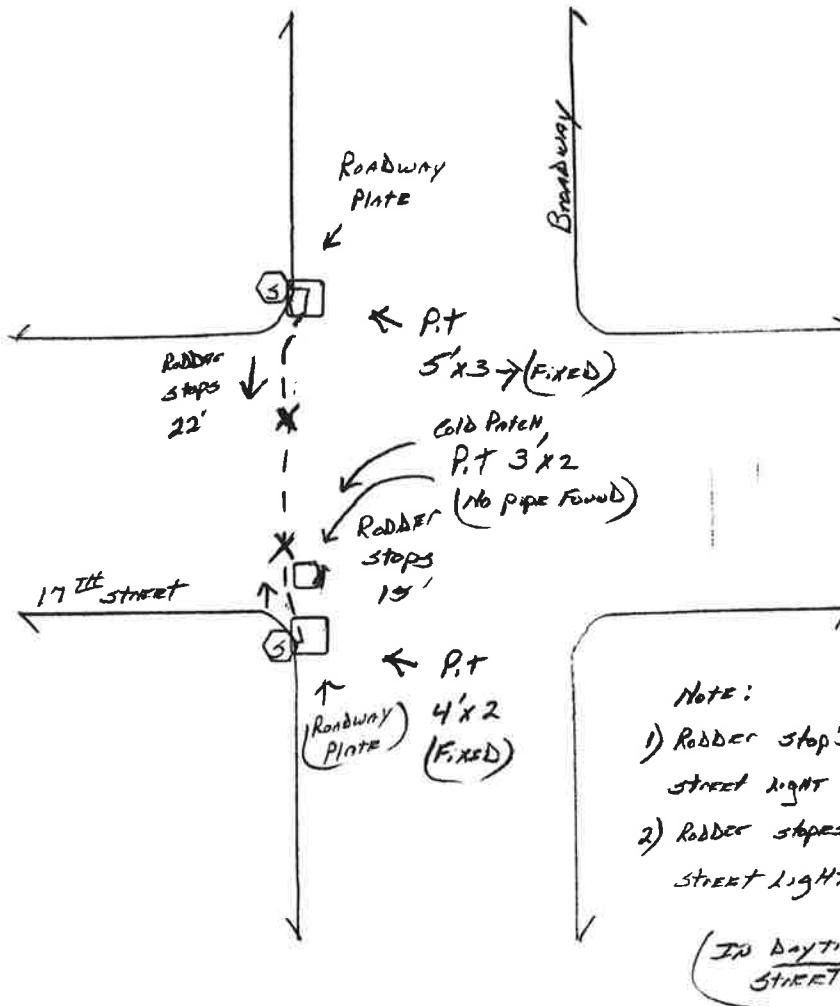 ROADWAY
PLATE
BROADWAY
S
Pit
5' x 3 → (FIXED)
RODDER
stops
22'
Cold Patch
Pit 3' x 2
(No pipe FOUND)
RODDER
stops
15'
17TH STREET
S
Pit
4' x 2
(FIXED)
(ROADWAY
PLATE)
Note:
1) RODDER stops
street LIGHT
2) RODDER stopes
street LIGHT
(IN DAYTI
STREET